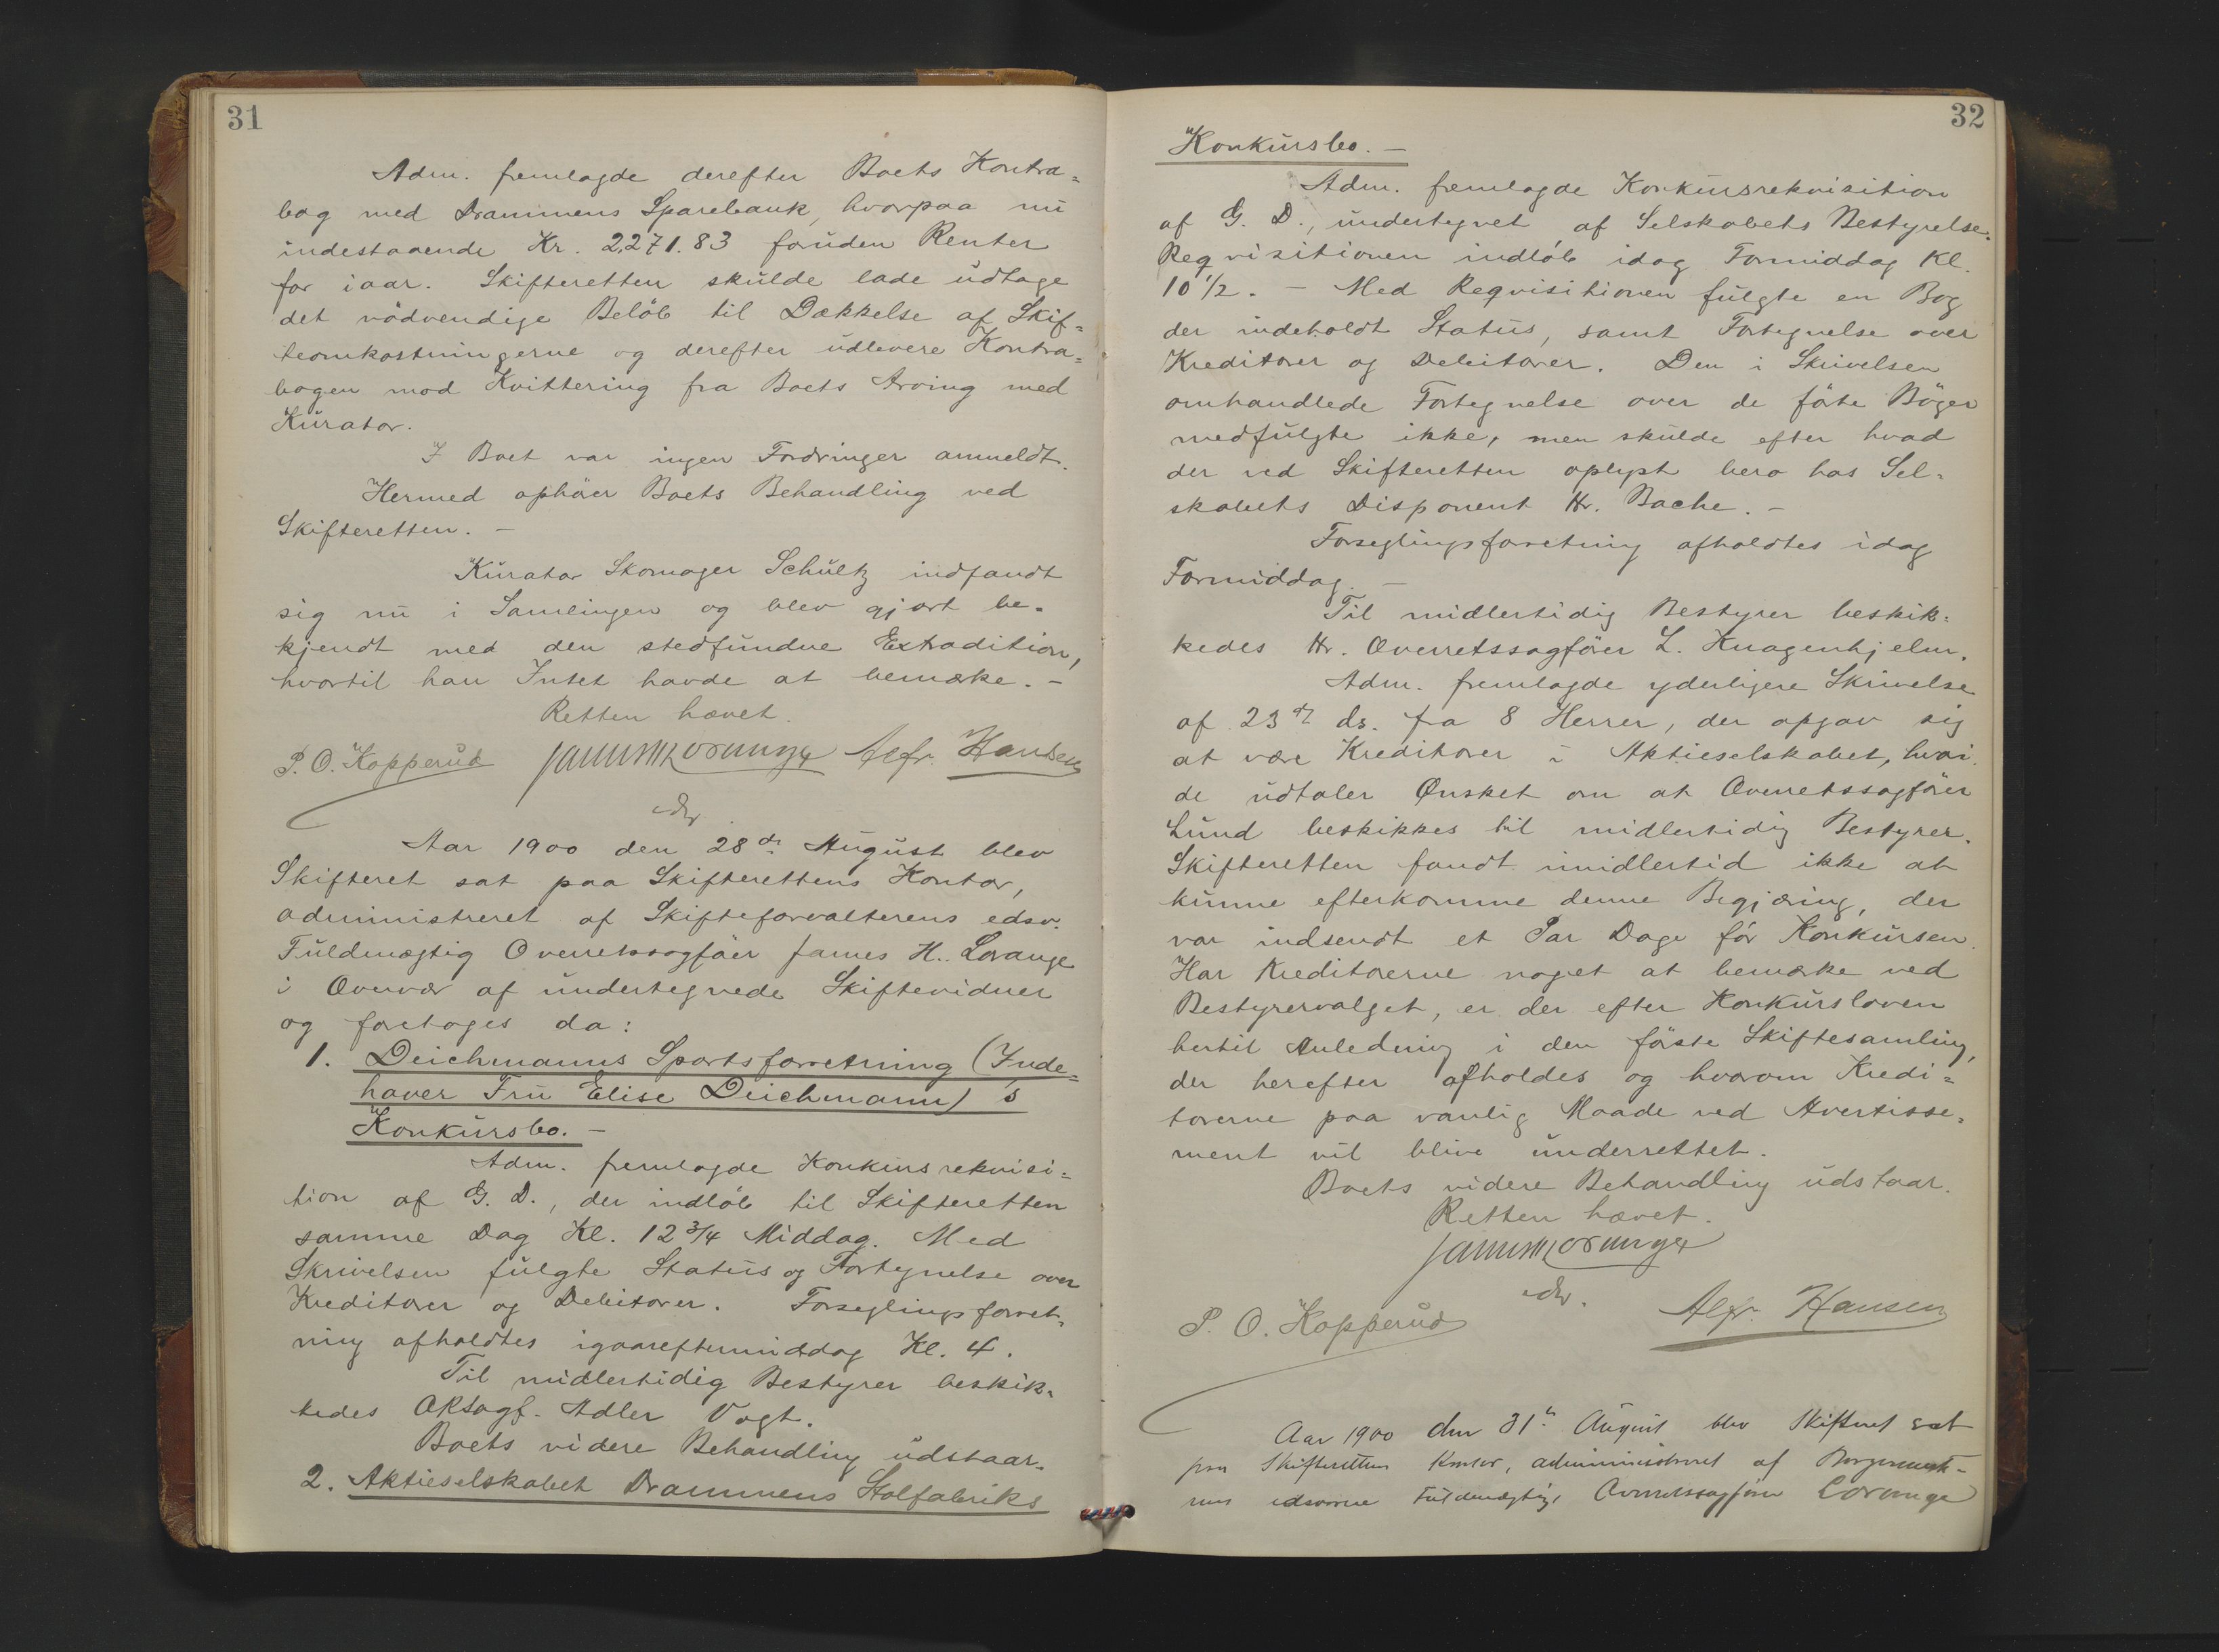 31
Adm. fremlagde derefter Boets Kontra=
bog med Drammens Sparebank, hvorpaa nu
indestaaende Kr. 2,271.83 foruden Renter
for iaar. Skifteretten skulde lade udtage
det nödvendige Belöb til Dækkelse af Skif=
teomkostningerne og derefter udlevere Kontra=
bogen mod Kvittering fra Boets Arving med
Kurator.
I Boet var ingen Fordringer anmeldt.
Hermed ophöer Boets Behandling ved
Skifteretten. –
Kurator Skomager Schultz indfandt
sig nu i Samlingen og blev gjort be=
kjendt med den stedfundne Extradition,
hvortil han Intet havde at bemærke. –
Retten hævet.
P. O. Kopperud James H Lorange Alfr. Hansen
edsv.
Aar 1900 den 28de August blev
Skifteret sat paa Skifterettens Kontor,
administreret af Skifteforvalterens edsv.
Fuldmægtig Overretssagföer James H. Lorange
i Overvær af undertegnede Skiftevidner
og foretoges da:
1. Deichmanns Sportsforretning (Inde=
haver Fru Elise Deichmann)'s
Konkursbo. –
Adm. fremlagde Konkursrekvisi=
tion af G. D., der indlöb til Skifteretten
samme Dag Kl. 12 3/4 Middag. Med
Skrivelsen fulgte Status og Fortegnelse over
Kreditorer og Debitorer. Forseglingsforret=
ning afholdtes igaareftermiddag Kl. 4.
Til midlertidig Bestyrer beskik=
kedes ORsagf. Adler Vogt.
Boets videre Behandling udstaar.
2. Aktieselskabet Drammens Stolfabriks
32
Konkursbo. –
Adm. fremlagde Konkursrekvisition
af G. D., undertegnet af Selskabets Bestyrelse.
Reqvisitionen indlöb idag Formiddag Kl.
10 1/2. – Med Reqvisitionen fulgte en Bog
der indeholdt Status, samt Fortegnelse over
Kreditorer og Debitorer. Den i Skrivelsen
omhandlede Fortegnelse over de förte Böger
medfulgte ikke, men skulde efter hvad
der ved Skifteretten oplyst bero hos Sel=
skabets Disponent Hr. Bache. –
Forseglingsforretning afholdtes idag
Formiddag. –
Til midlertidig Bestyrer beskik=
kedes Hr. Overretssagförer L. Knagenhjelm.
Adm. fremlagde yderligere Skrivelse
af 23de ds. fra 8 Herrer, der opgav sig
at være Kreditorer i Aktieselskabet, hvori
de udtaler Ønsket om at Overretssagförer
Lund beskikkes til midlertidig Bestyrer.
Skifteretten fandt imidlertid ikke at
kunne efterkomme denne Begjæring, der
var indsendt et Par Dage för Konkursen.
Har Kreditorerne noget at bemærke ved
Bestyrervalget, er der efter Konkursloven
hertil Anledning i den förste Skiftesamling,
der herefter afholdes og hvorom Kredi=
torerne paa vanlig Maade ved Avertisse=
ment vil blive underrettet.
Boets videre Behandling udstaar.
Retten hævet.
James H Lorange
edsv.
P. O. Kopperud Alfr. Hansen
Aar 1900 den 31te August blev Skifteret sat
paa Skifterettens Kontor, administreret af Borgermeste=
rens edsvorne Fuldmægtig, Overretssagförer Lorange